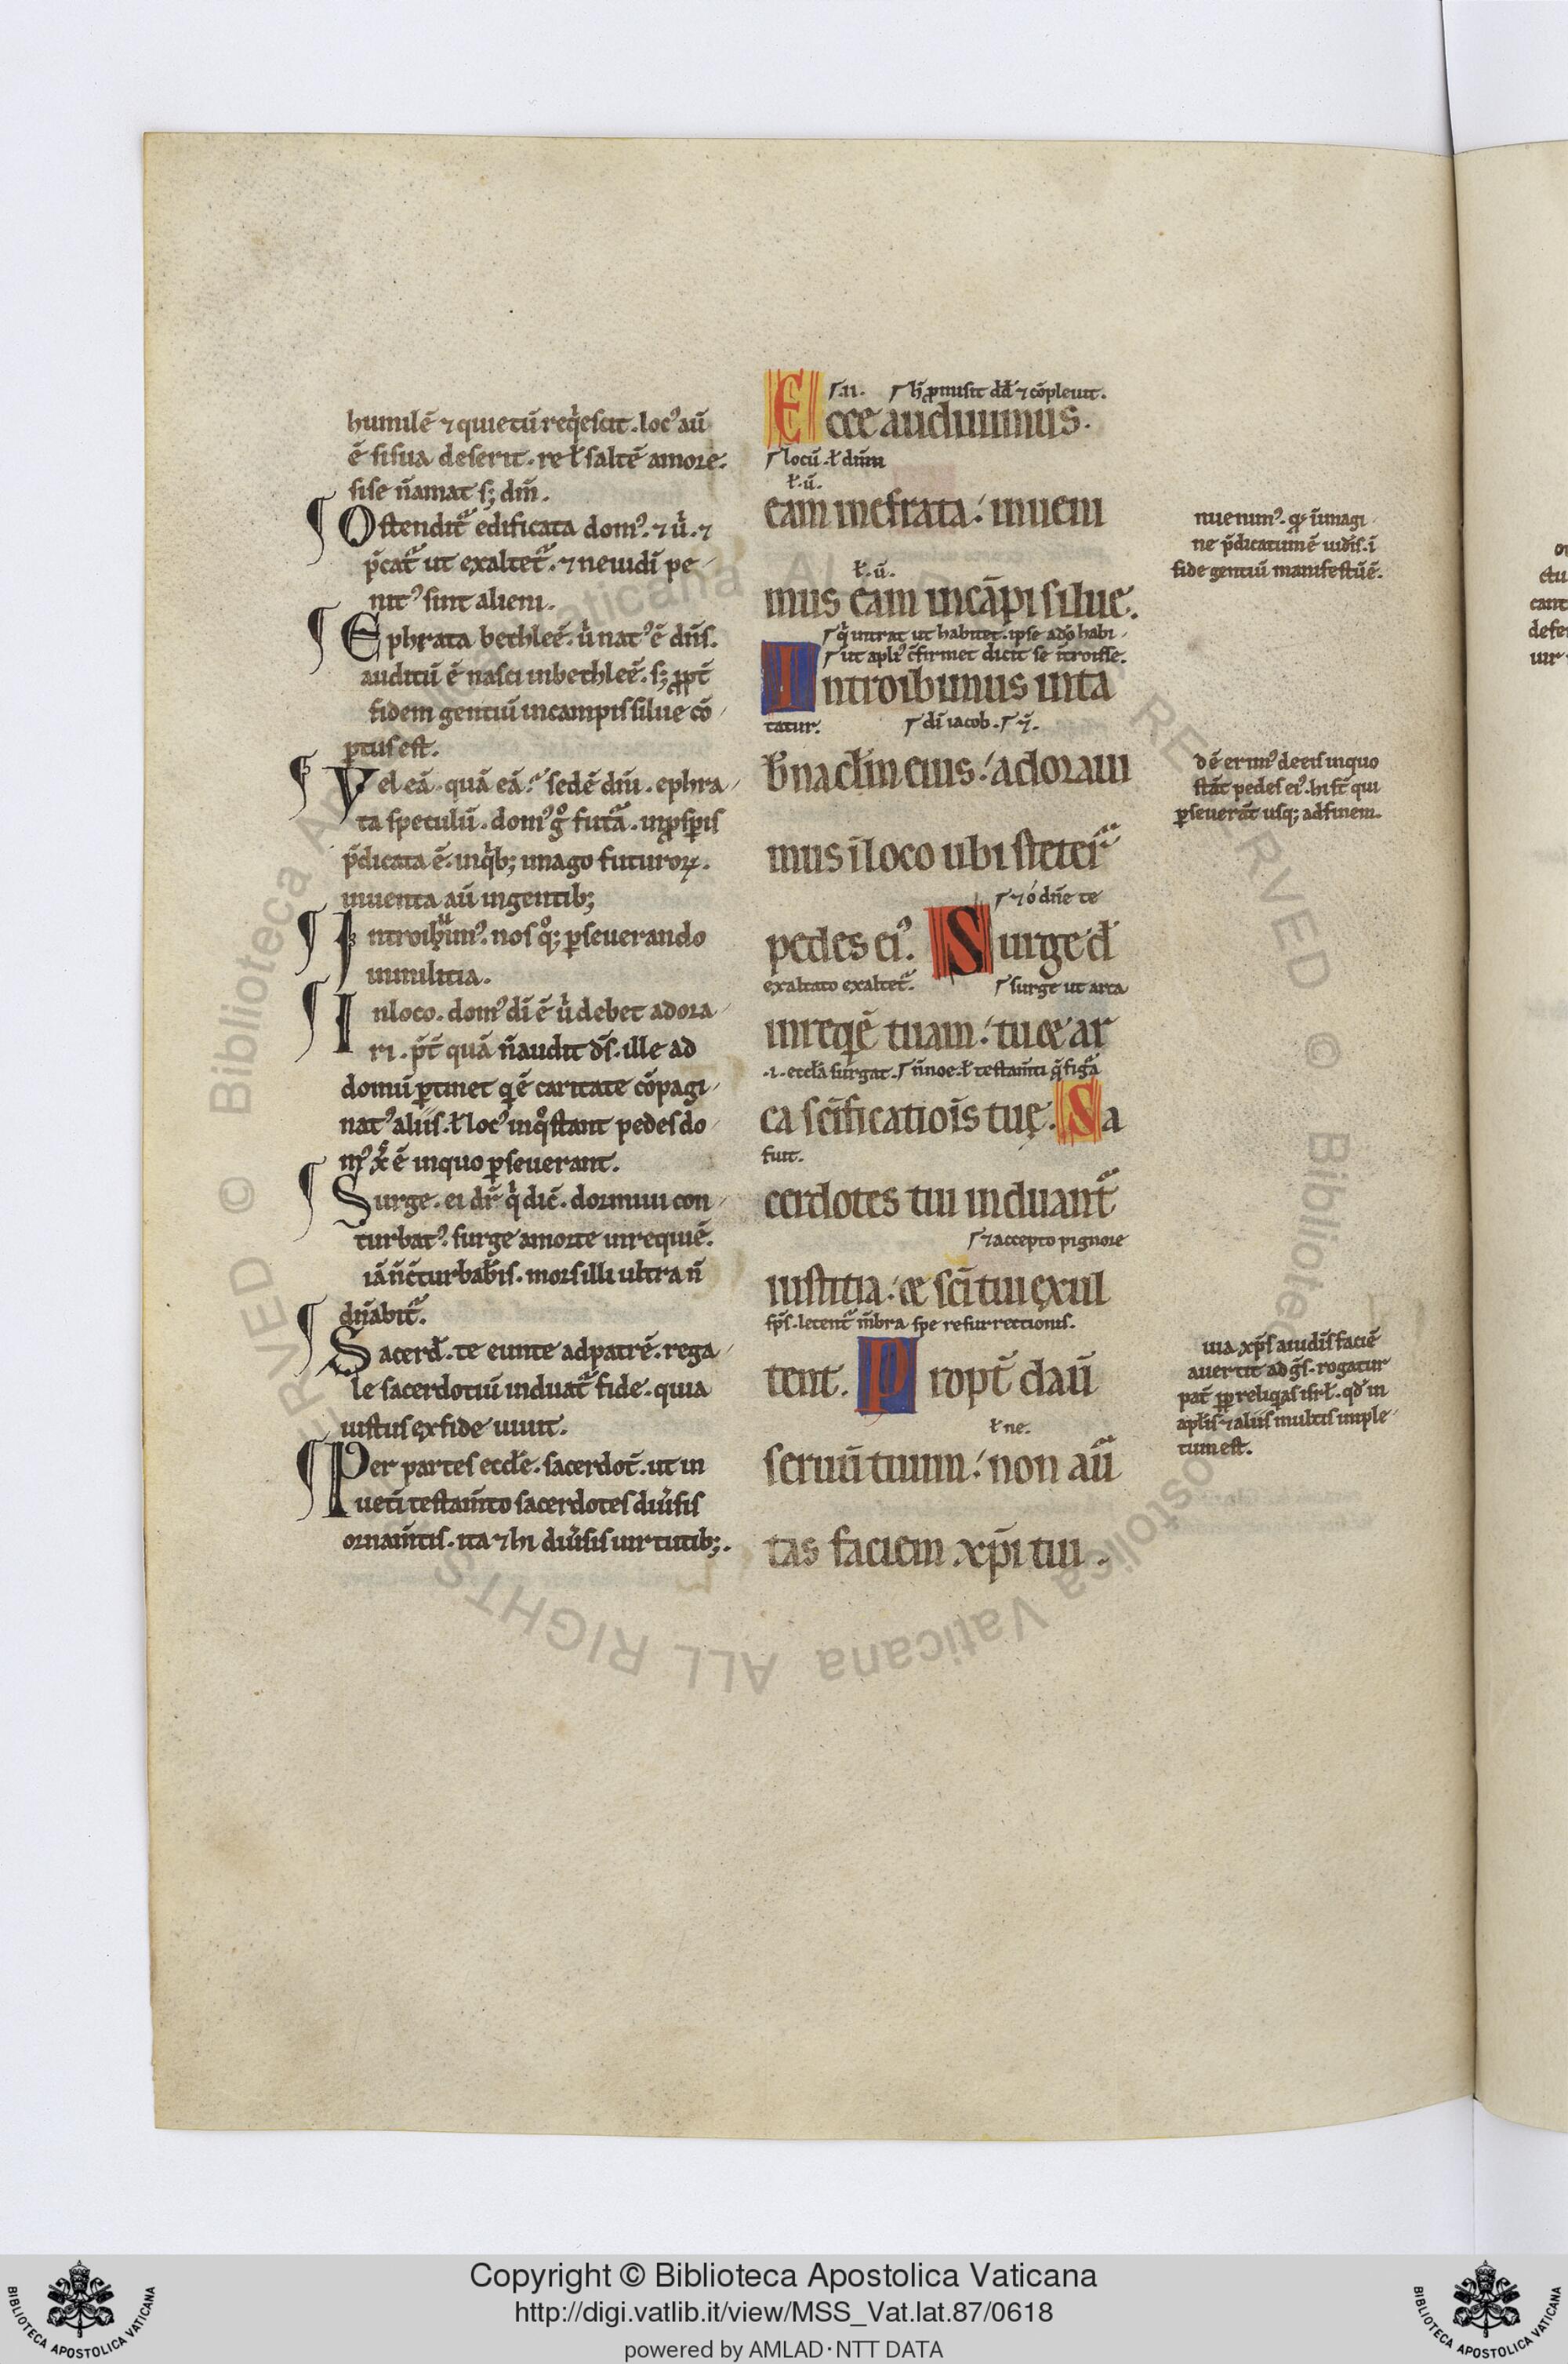 humilē ⁊ quietū reqͥescit. locꝰ aū
ē si sua deserit. re ł saltē amore.
si se n̄ amat sꝫ dm̄.
Ostendit᷑ edificata domꝰ. ⁊ uͥ. ⁊
p̄cat᷑ ut exaltet᷑. ⁊ ne uidi pe
nitꝰ sint alieni.
Ephrata bethleē. uͥ natꝰ ē dn̄s.
auditū ē nasci in bethleē. sꝫ ꝓpt̄
fidem gentiū in campis silue cō
ptus est.
Vel eā. quā eā. sedē dm̄. ephra
ta speculū. domꝰ gͦ futᷓa. in ꝓsꝑis
p̄dicata ē. in qͥbꝫ imago futuroꝝ.
inuenta aū in gentibꝫ
Introibimꝰ. nos qͦꝫ ꝑseuerando
in militia.
In loco. domꝰ di ē uͥ debet adora
ri. p̄t quā n̄ audit ds̄. ille ad
domū ꝑtinet q̄ ē caritate cōpagi
natꝰ aliis. ł locꝰ in qͦ stant pedes do
mꝰ xͨ ē in quo ꝑseuerant.
Surge. ei dr̄ qͥ dic̄. dormiui con
turbatꝰ. surge a morte in requiē.
iā n̄ ↄturbab̄is. mors illi ultra n̄
dn̄abit᷑.
Sacerd̄. te eunte ad patrē. rega
le sacerdotiū induat᷑ fide. quia
iustus ex fide uiuit.
Per partes eccłe. sacerdot̄. ut in
uet̄i testam̄to sacerdotes diuͥsis
ornam̄tis. ita ⁊ hi diuͥsis uirtutibꝫ.
.ii. h̄ ꝓmisit dd̄ ⁊ cōpleuit.
Ecce audiuimus.
locū. ł dūm
ł. ū.
eam in efrata. inueni
ł. ū.
mus eam in cāpi silue.
qͥ intrat ut habitet. ipse ad̄o habi
ut aplꝰ ↄfirmet dicit se ītroisse.
Introibimus in ta
tatur. di iacob.
b̄nacłm eius. adoraui
mus ī loco ubi stetert᷑
⁊ ó dn̄e te
pedes eiꝰ. Surge d̄
exaltato exaltet᷑. surge ut arca
in reqͥē tuam. tu ⁊ ar
.i. eccła surgat. n̄ noe. ł testam̄ti q̄ figᷓa
ca sc̄ificatiōis tuę. Sa
fuit.
cerdotes tui induant᷑
⁊ accepto pignore
iustitia. ⁊ sc̄i tui exul
sp̄s. letent᷑ m̄bra spe resurrectionis.
tent. Propt̄ dauī
ł ne.
seruū tuum. non au᷑
tas faciem xp̄i tui.
nuenimꝰ. qͣ in imagi
ne p̄dicatum ē uid̄is. ī
fide gentiū manifestū ē.
dē erimꝰ de eis in quo
stāt pedes eiꝰ. hi sūt qui
ꝑseuerāt usqꝫ ad finem.
uia xp̄s a iudīs faciē
auertit ad gs̄. rogatur
pat̄ ꝓpt reliqͣas isrł. qd̄ in
apłis ⁊ aliis multis imple
tum est.
ctu
cant
defe
uir
© Biblioteca Apostolica Vaticana ALL RIGHTS RESERVED
Copyright © Biblioteca Apostolica Vaticana
http://digi.vatlib.it/view/MSS_Vat.lat.87/0618
powered by AMLAD·NTT DATA
BIBLIOTECA APOSTOLICA VATICANA
BIBLIOTECA APOSTOLICA VATICANA